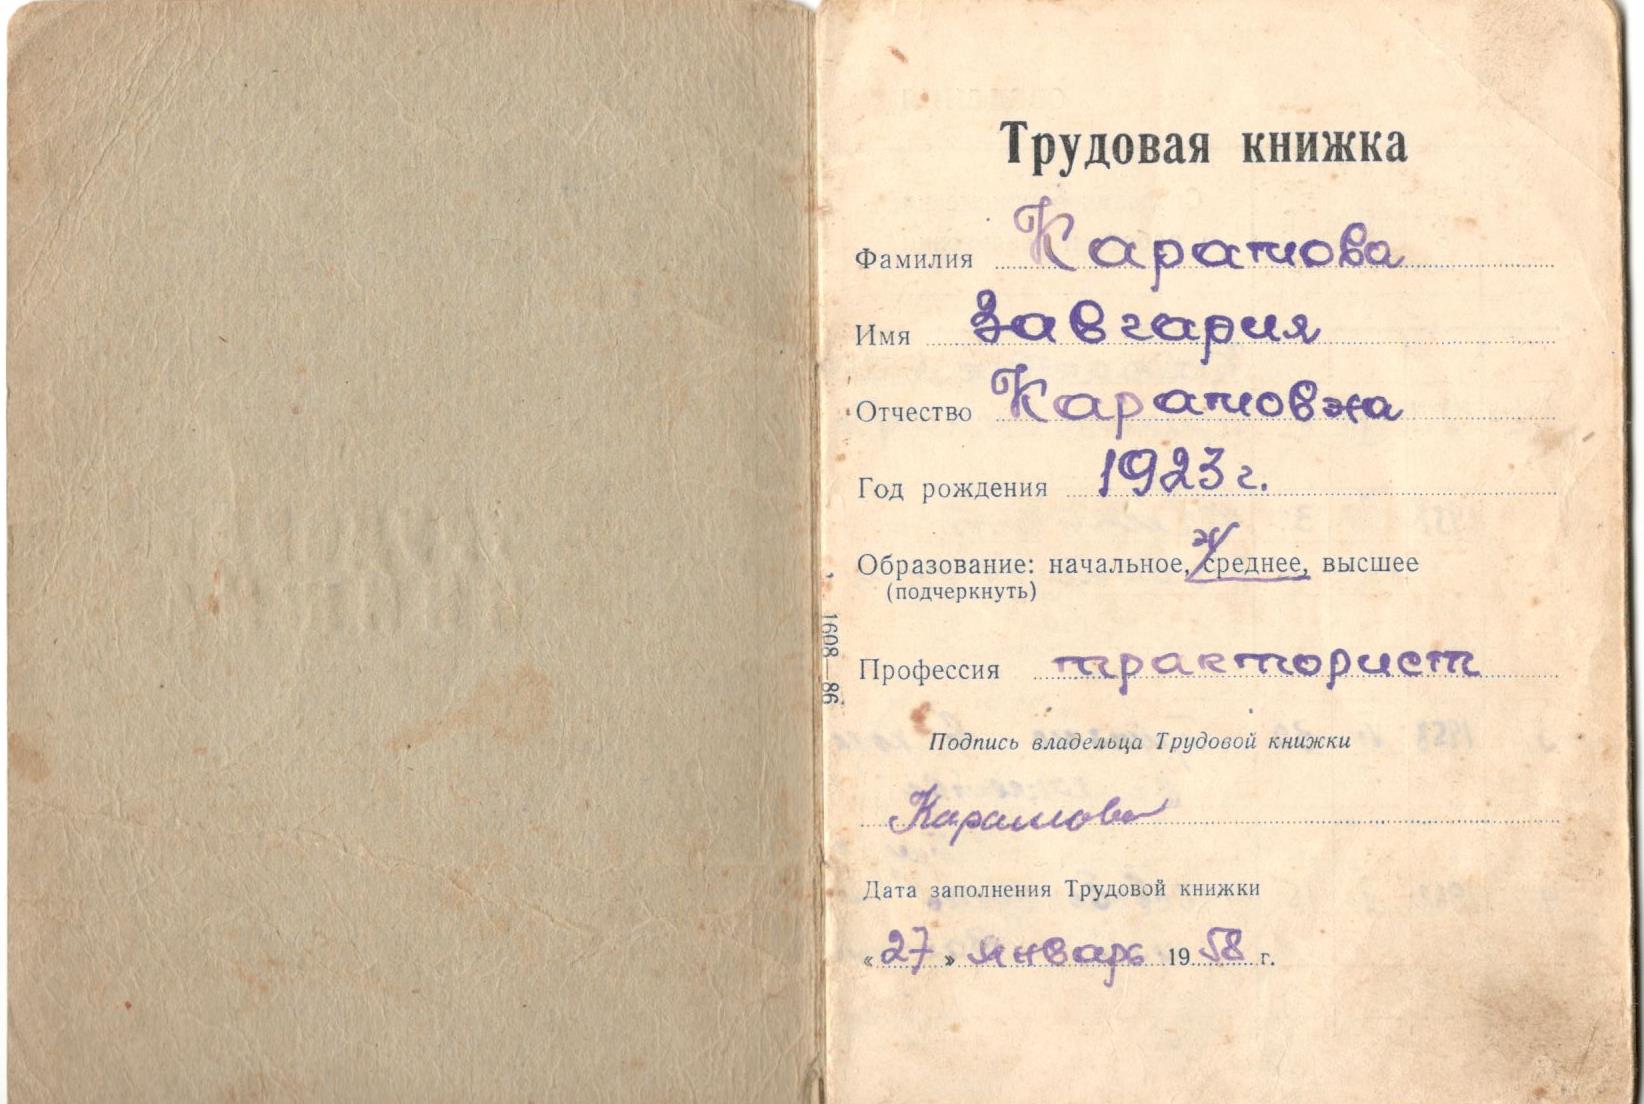 Трудовая книжка
Фамилия Карамова
Имя Завгария
Отчество Карамовна
Год рождения 1923 г.
Образование: начальное, н/среднее, высшее
(подчеркнуть)
Профессия тракторист
Подпись владельца Трудовой книжки
Карамова
Дата заполнения Трудовой книжки
«27» январь 1958 г.
1608—86